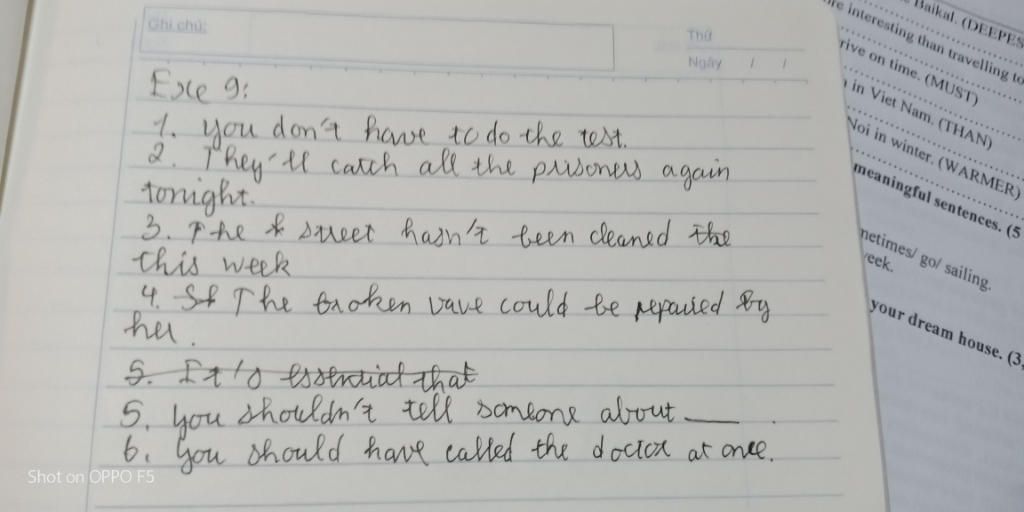 Ghi chú:
Thứ
Ngày / /
Exe 9:
1. You don't have to do the test.
2. They'll catch all the prisoners again
tonight.
3. The street hasn't been cleaned the
this week
4. The broken vave could be repaired by
her.
5. It's essential that
5. You shouldn't tell someone about ____ .
6. You should have called the doctor at once.
Baikal. (DEEPES
re interesting than travelling to
rive on time. (MUST)
in Viet Nam. (THAN)
Noi in winter. (WARMER)
meaningful sentences. (5
netimes/ go/ sailing.
eek.
your dream house. (3,
Shot on OPPO F5